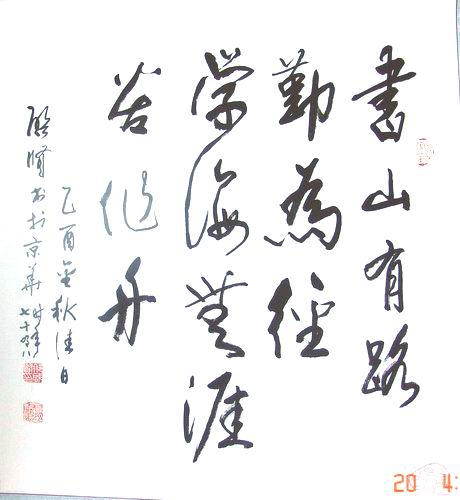 書山有路
勤為徑
学海無涯
苦作舟
乙酉金秋佳日
书於京華时年七十
20 4: